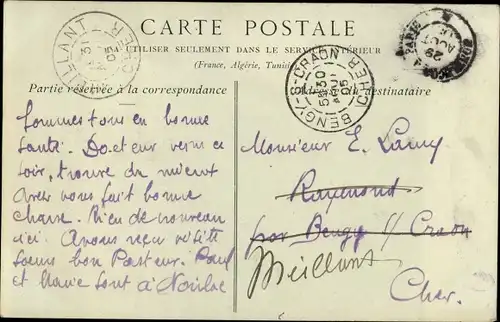 CARTE POSTALE
A UTILISER SEULEMENT DANS LE SERVICE INTÉRIEUR
(France, Algérie, Tunisie
Partie réservée à la correspondance
destinataire
MEILLANT
CHER
31
05
BENGY-S-CRAON
(CHER)
30
AOU
05
PARIS
29
AOUT
Sommes tous en bonne
santé. Docteur venu ce
soir, trouve du mieux
Avez vous fait bonne
chasse. Rien de nouveau
ici. Avons reçu visite
soeurs bon Pasteur. Paul
et Marie sont à Noirlac
Monsieur E. Lamy
Raymond
par Bengy s/ Craon
Meillant
Cher.